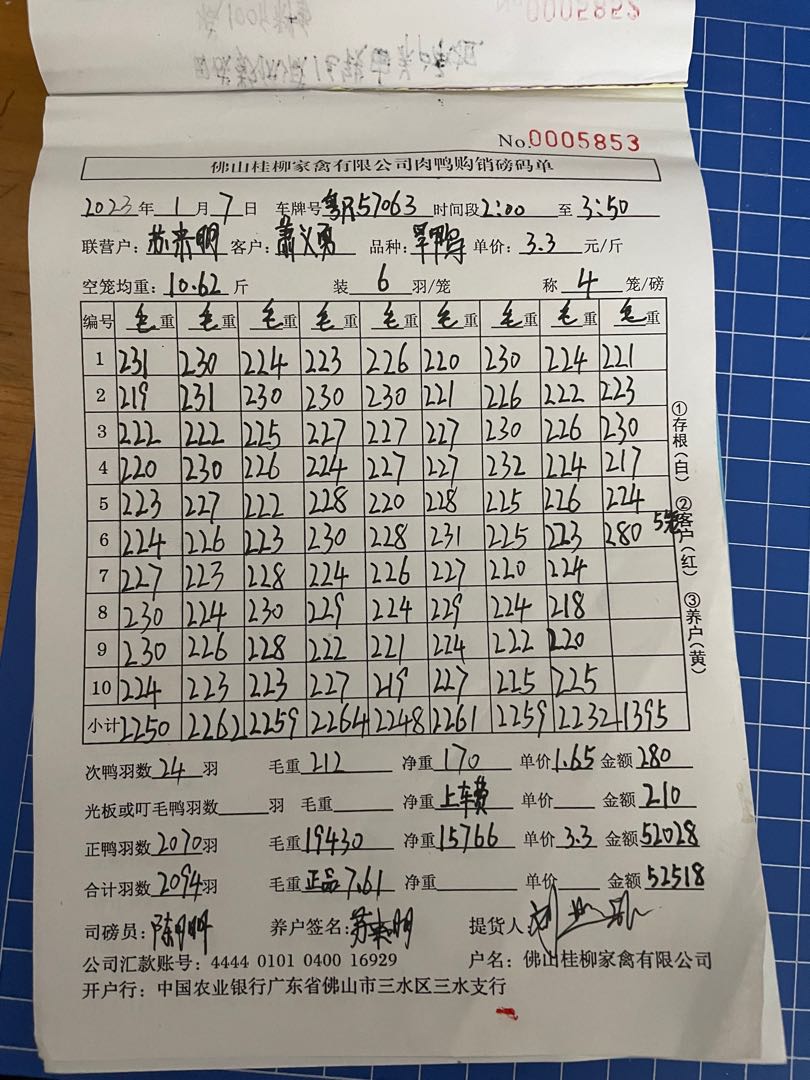 No.0005853
佛山桂柳家禽有限公司肉鸭购销磅码单
2023年1月7日 车牌号粤R57063 时间段2:00至3:50
联营户:苏来明 客户:萧义勇 品种:旱鸭 单价:3.3元/斤
空笼均重:10.62斤 装6羽/笼 称4笼/磅
编号 毛重 毛重 毛重 毛重 毛重 毛重 毛重 毛重 毛重
1 231 230 224 223 226 220 230 224 221
2 219 231 230 230 230 221 226 222 223
3 222 222 225 227 227 227 230 226 230
4 220 230 226 224 227 227 232 224 217
5 223 227 222 228 220 228 225 226 224
6 224 226 223 230 228 231 225 223 280 5笼
7 227 223 228 224 226 227 220 224
8 230 224 230 229 224 229 224 218
9 230 226 228 222 221 224 222 220
10 224 223 223 227 219 227 225 225
小计 2250 2262 2259 2264 2248 2261 2259 2232 1395
①存根(白) ②客户(红) ③养户(黄)
次鸭羽数24羽 毛重212 净重170 单价1.65 金额280
光板或叮毛鸭羽数 羽 毛重 净重上车费 单价 金额210
正鸭羽数2070羽 毛重19430 净重15766 单价3.3 金额52028
合计羽数2094羽 毛重正品7.61 净重 单价 金额52518
司磅员: 养户签名:苏来明 提货人:
公司汇款账号:4444 0101 0400 16929 户名:佛山桂柳家禽有限公司
开户行:中国农业银行广东省佛山市三水区三水支行